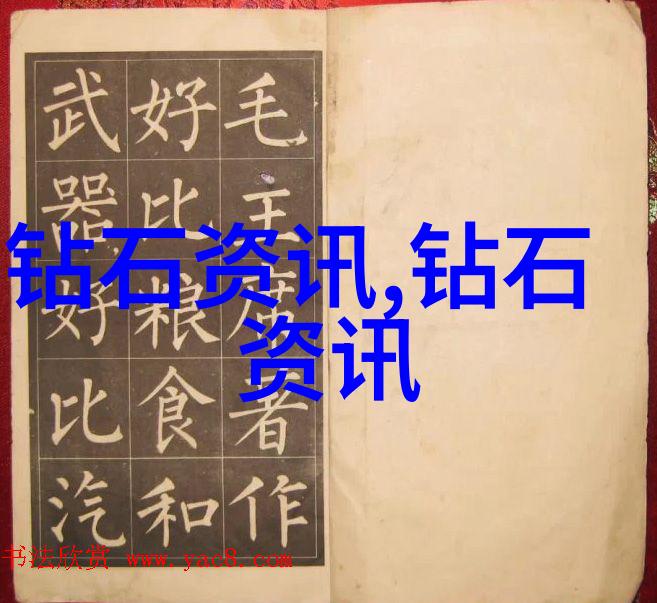 毛主席著作
好比粮食和
武器好比汽
钻石资讯,钻石
资讯
书法欣赏 www.yac8.com